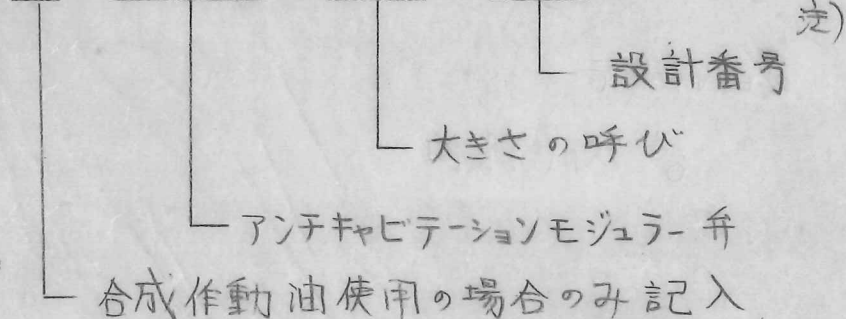 注)
設計番号
大きさの呼び
アンチキャビテーションモジュラー弁
合成作動油使用の場合のみ記入